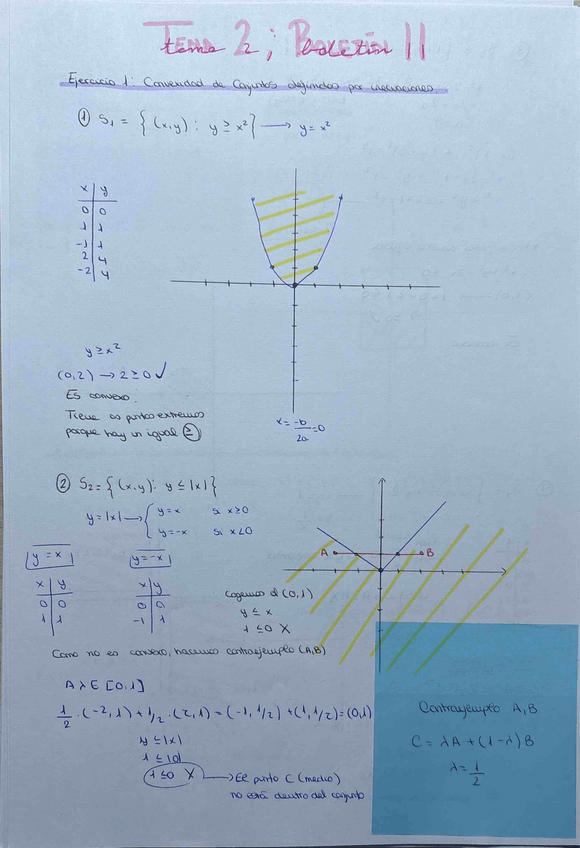 Tema 2; Boletín 11
tema 2; boletín 11
Ejercicio 1: Convexidad de conjuntos definidos por inecuaciones
① S₁ = { (x,y) : y ≥ x² } → y = x²
x | y
0 | 0
1 | 1
-1 | 1
2 | 4
-2 | 4
y ≥ x²
(0,2) → 2 ≥ 0 ✓
Es convexo.
Tiene os puntos extremos
porque hay un igual (≥)
x = -b/2a = 0
② S₂ = { (x,y) : y ≤ |x| }
y = |x| → { y = x si x ≥ 0
y = -x si x < 0
y = x
x | y
0 | 0
1 | 1
y = -x
x | y
0 | 0
-1 | 1
A
B
cogemos el (0,1)
y ≤ x
1 ≤ 0 X
Como no es convexo, hacemos contraejemplo (A,B)
A λ ∈ [0,1]
1/2 · (-2,1) + 1/2 · (2,1) = (-1, 1/2) + (1, 1/2) = (0,1)
y ≤ |x|
1 ≤ |0|
1 ≤ 0 X → El punto C (medio)
no está dentro del conjunto
Contraejemplo A, B
C = λA + (1-λ) B
λ = 1/2